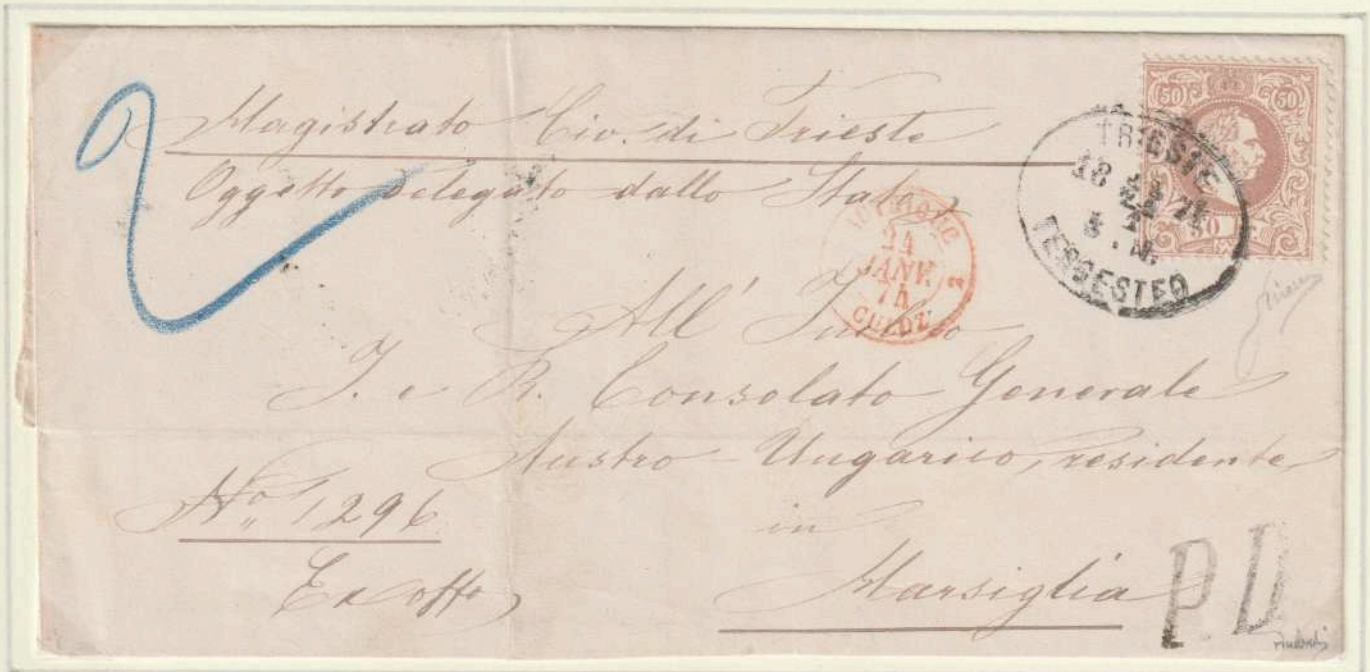 2
Magistrato Civ. di Trieste
Oggetto delegato dallo Stato
50 50
TRIESTE
TERGESTEO
24
JANV.
74
2
All'
I. e R. Consolato Generale
Austro-Ungarico, residente
in
Marsiglia
No. 1296
Ex offo
P.D